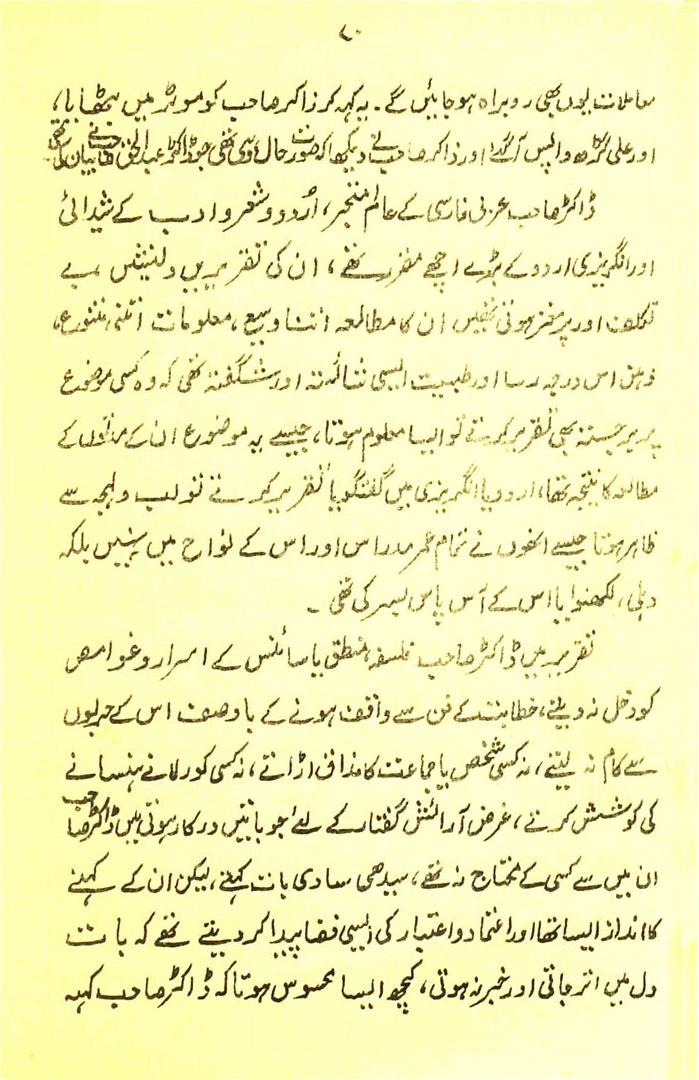 ۲۰
معاملات یوں بھی روبراہ ہوجائیں گے۔ یہ کہہ کر ذاکر صاحب کو موٹر میں بٹھایا،
اور علی گڑھ واپس آگئے! اور ذاکر صاحب نے دیکھا کہ صورت حال وہی تھی جو ڈاکٹر عبدالحق صاحب نے بیان کی تھی
ڈاکٹر صاحب عربی فارسی کے عالم متبحر، اُردو و شعر و ادب کے شیدائی
اور انگریزی اردو کے بڑے اچھے مقرر تھے، ان کی تقریریں دلنشیں، بے
تکلف اور پرمغز ہوتی تھیں ان کا مطالعہ اتنا وسیع، معلومات اتنی متنوع،
ذہن اس درجہ رسا اور طبیعت ایسی شائستہ اور شگفتہ تھی کہ وہ کسی موضوع
پر برجستہ بھی تقریر کرتے تو ایسا معلوم ہوتا، جیسے یہ موضوع ان کے مدتوں کے
مطالعہ کا نتیجہ تھا، اردو یا انگریزی میں گفتگو یا تقریر کرتے تو لب و لہجہ سے
ظاہر ہوتا جیسے انھوں نے تمام عمر مدراس اور اس کے نواح میں نہیں بلکہ
دہلی، لکھنؤ یا اس کے آس پاس بسر کی تھی۔
تقریر میں ڈاکٹر صاحب فلسفہ، منطق یا سائنس کے اسرار و غوامض
کو دخل نہ دیتے، خطابت کے فن سے واقف ہونے کے باوصف اس کے حربوں
سے کام نہ لیتے، نہ کسی شخص یا جماعت کا مذاق اڑاتے، نہ کسی کو رلانے ہنسانے
کی کوشش کرتے، غرض آرائش گفتار کے لئے جو باتیں درکار ہوتی ہیں ڈاکٹر صاحب
ان میں سے کسی کے محتاج نہ تھے، سیدھی سادی بات کہتے، لیکن ان کے کہنے
کا انداز ایسا تھا اور اعتماد و اعتبار کی ایسی فضا پیدا کر دیتے تھے کہ بات
دل میں اتر جاتی اور خبر نہ ہوتی، کچھ ایسا محسوس ہوتا کہ ڈاکٹر صاحب کہہ